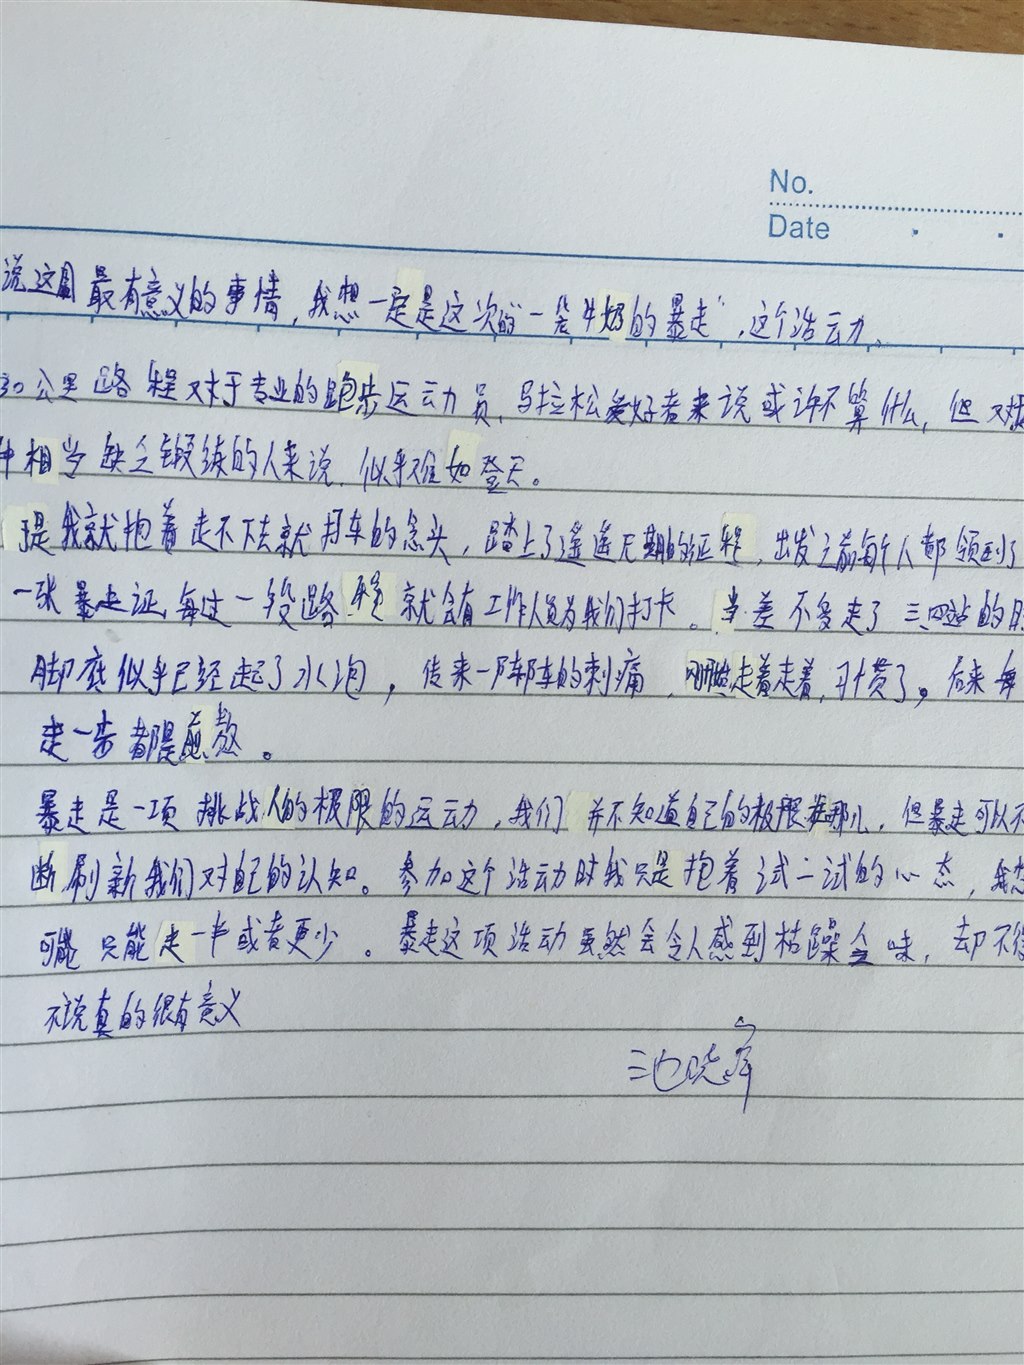 No.
Date
说这周最有意义的事情,我想一定是这次的"一袋牛奶的暴走",这个活动。
30公里路程对于专业的跑步运动员,马拉松爱好者来说或许不算什么,但对我
种相当缺乏锻练的人来说,似乎难如登天。
于是我就抱着走不下去就打车的念头,踏上了遥遥无期的征程,出发之前每个人都领到了
一张暴走证,每过一段路程就会有工作人员为我们打卡。当差不多走了三四站的时
脚底似乎已经起了水泡,传来一阵阵的刺痛,走着走着,习惯了。后来每
走一步都是煎熬。
暴走是一项挑战人的极限的运动,我们并不知道自己的极限在哪儿,但暴走可以不
断刷新我们对自己的认知。参加这个活动时我只是抱着试一试的心态,我想
可能只能走一半或者更少。暴走这项活动虽然会令人感到枯躁乏味,却不得
不说真的很有意义